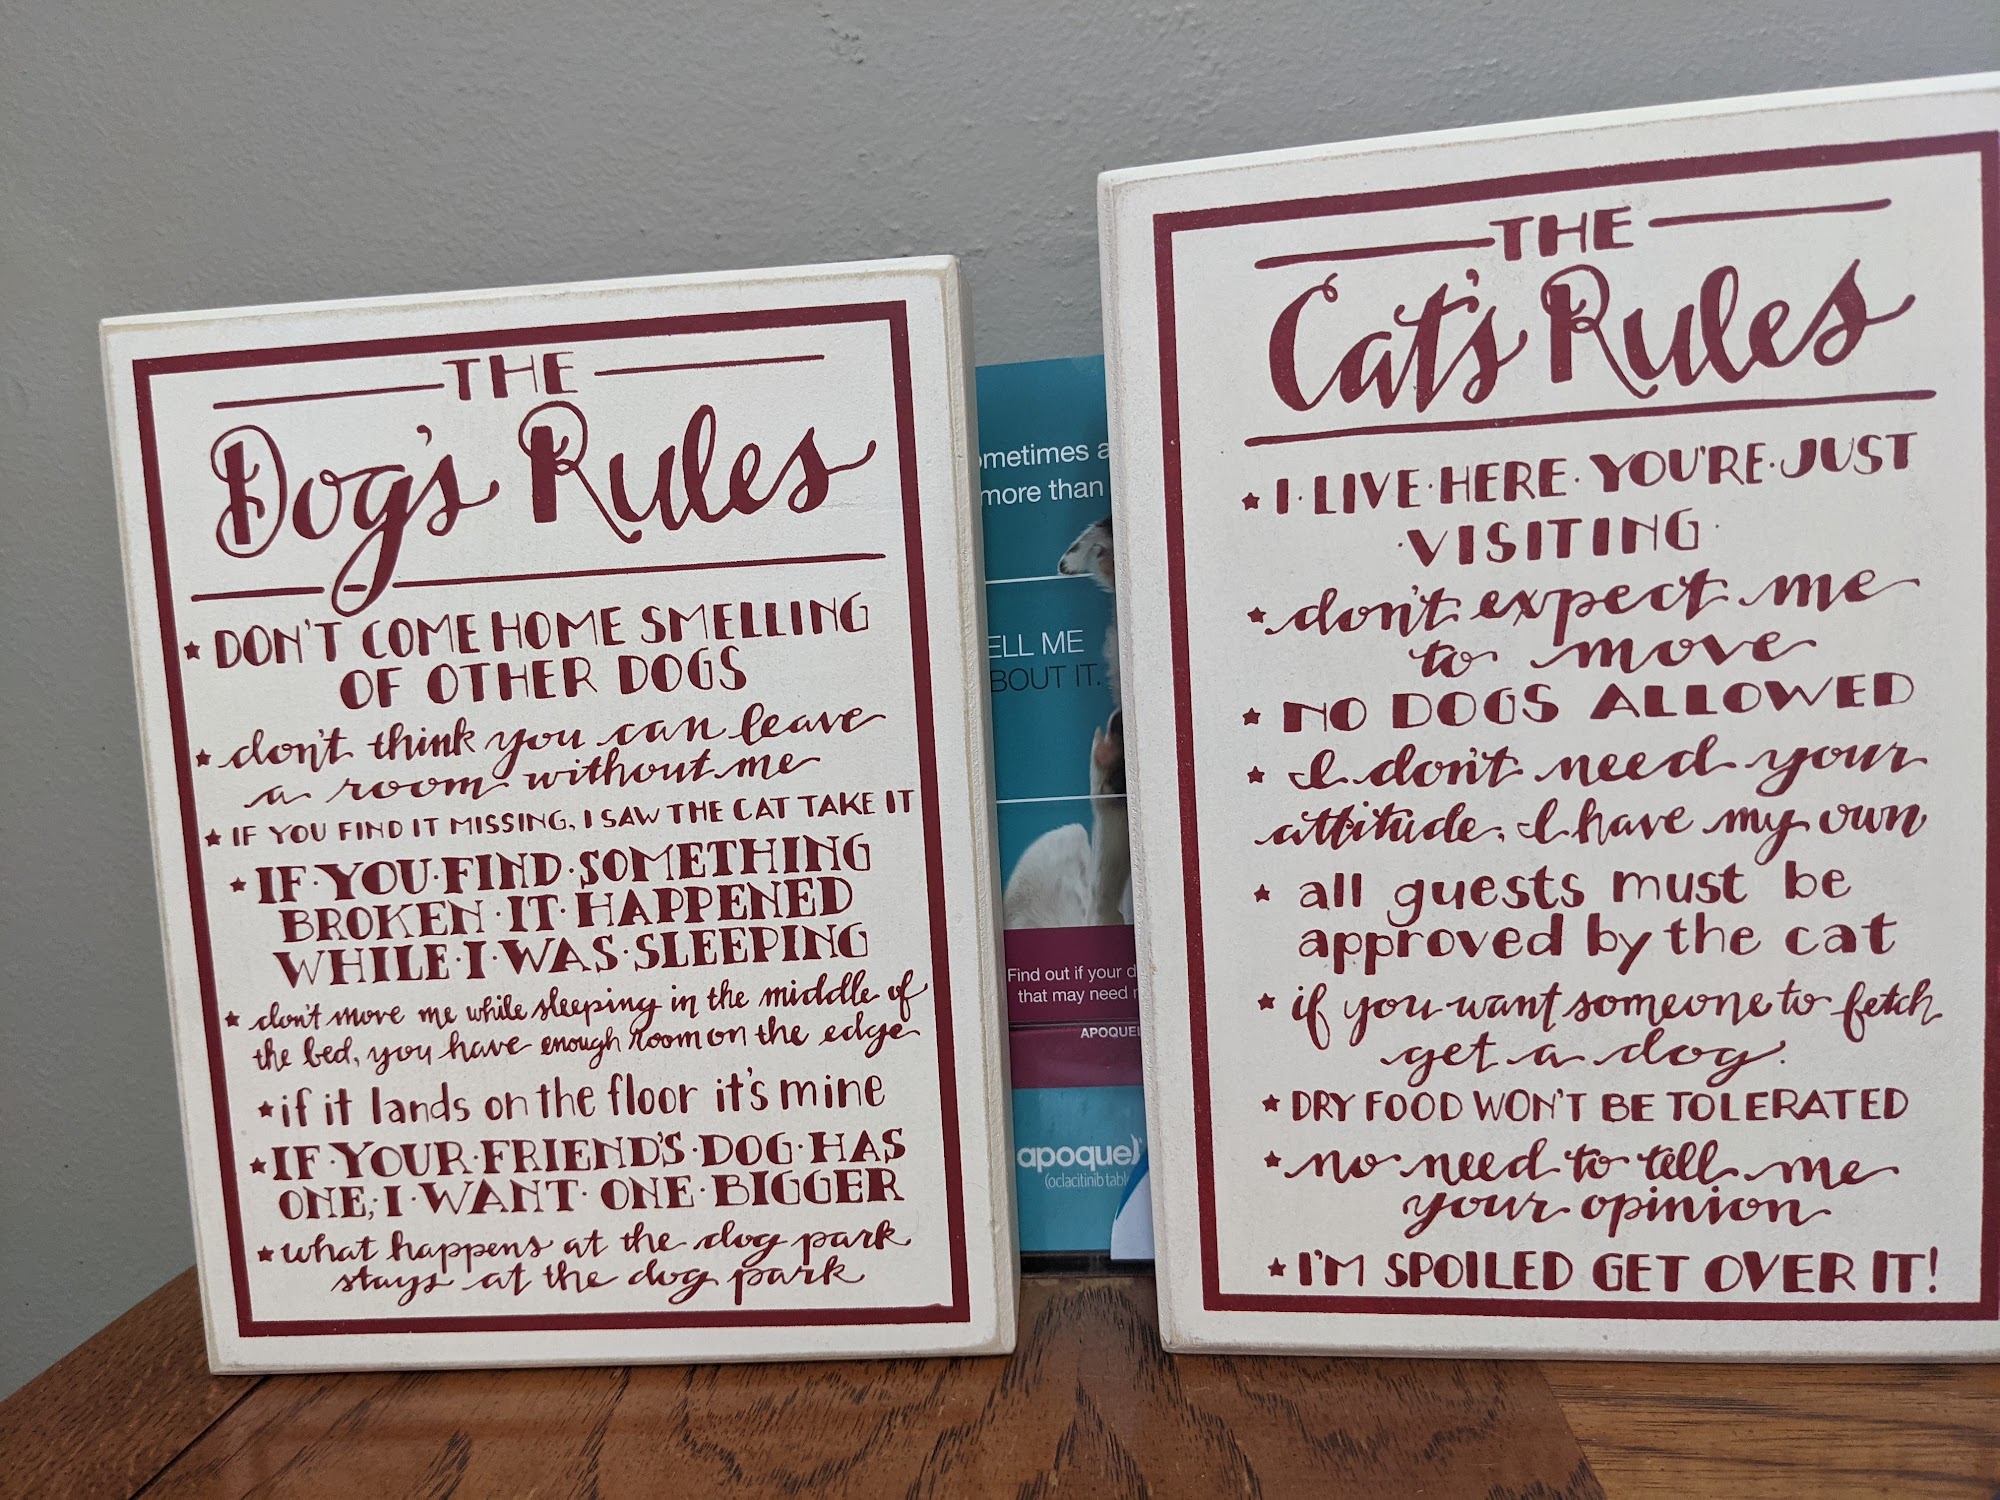 THE
Dog's Rules
DON'T COME HOME SMELLING
OF OTHER DOGS
don't think you can leave
a room without me
IF YOU FIND IT MISSING, I SAW THE CAT TAKE IT
IF·YOU·FIND·SOMETHING
BROKEN·IT·HAPPENED
WHILE·I·WAS·SLEEPING
don't move me while sleeping in the middle of
the bed, you have enough room on the edge
if it lands on the floor it's mine
IF·YOUR·FRIEND'S·DOG·HAS
ONE, I·WANT·ONE·BIGGER
what happens at the dog park
stays at the dog park
more than
ELL ME
BOUT IT.
Find out if your
that may need
APOQUEL
apoquel
(oclacitinib
THE
Cat's Rules
I·LIVE·HERE·YOU'RE·JUST
·VISITING·
don't expect me
to move
NO DOGS ALLOWED
I don't need your
attitude, I have my own
all guests must be
approved by the cat
if you want someone to fetch
get a dog.
DRY FOOD WON'T BE TOLERATED
no need to tell me
your opinion
I'M SPOILED GET OVER IT!